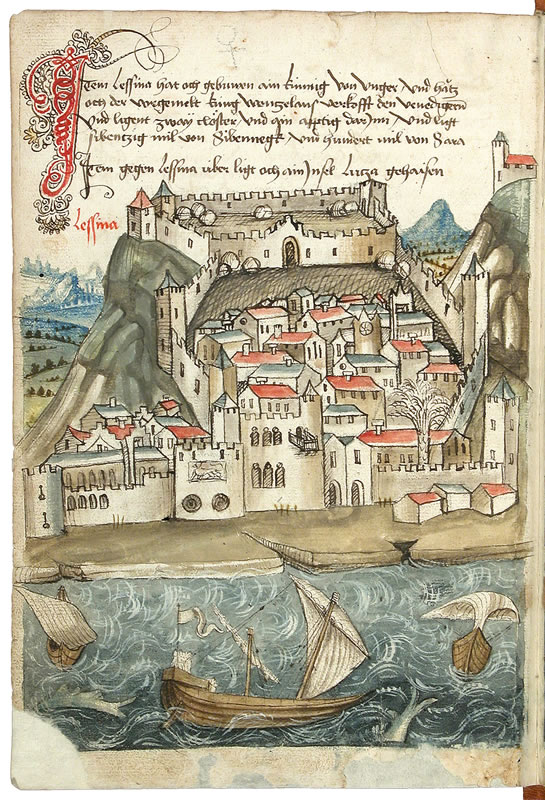 Item Lessina hat och gebuwen ain künnig von vnger vnd hatz
och der vnegemelt küng wenzelaus verkofft den venedigern
vnd ligent zway closter vnd ain apttig dar Inn vnd ligt
sibentzig mil von Sibennegk vnd hundert mil von Sara
Item gegen Lessina über ligt och ain Insel Luza gehaisen
Lessina